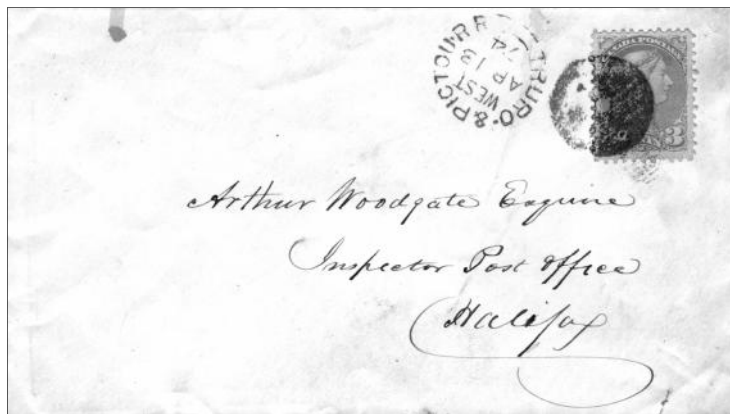 TRURO & PICTOU R R
WEST
AP 13
74
CANADA POSTAGE
3
Arthur Woodgate Esquire
Inspector Post Office
Halifax